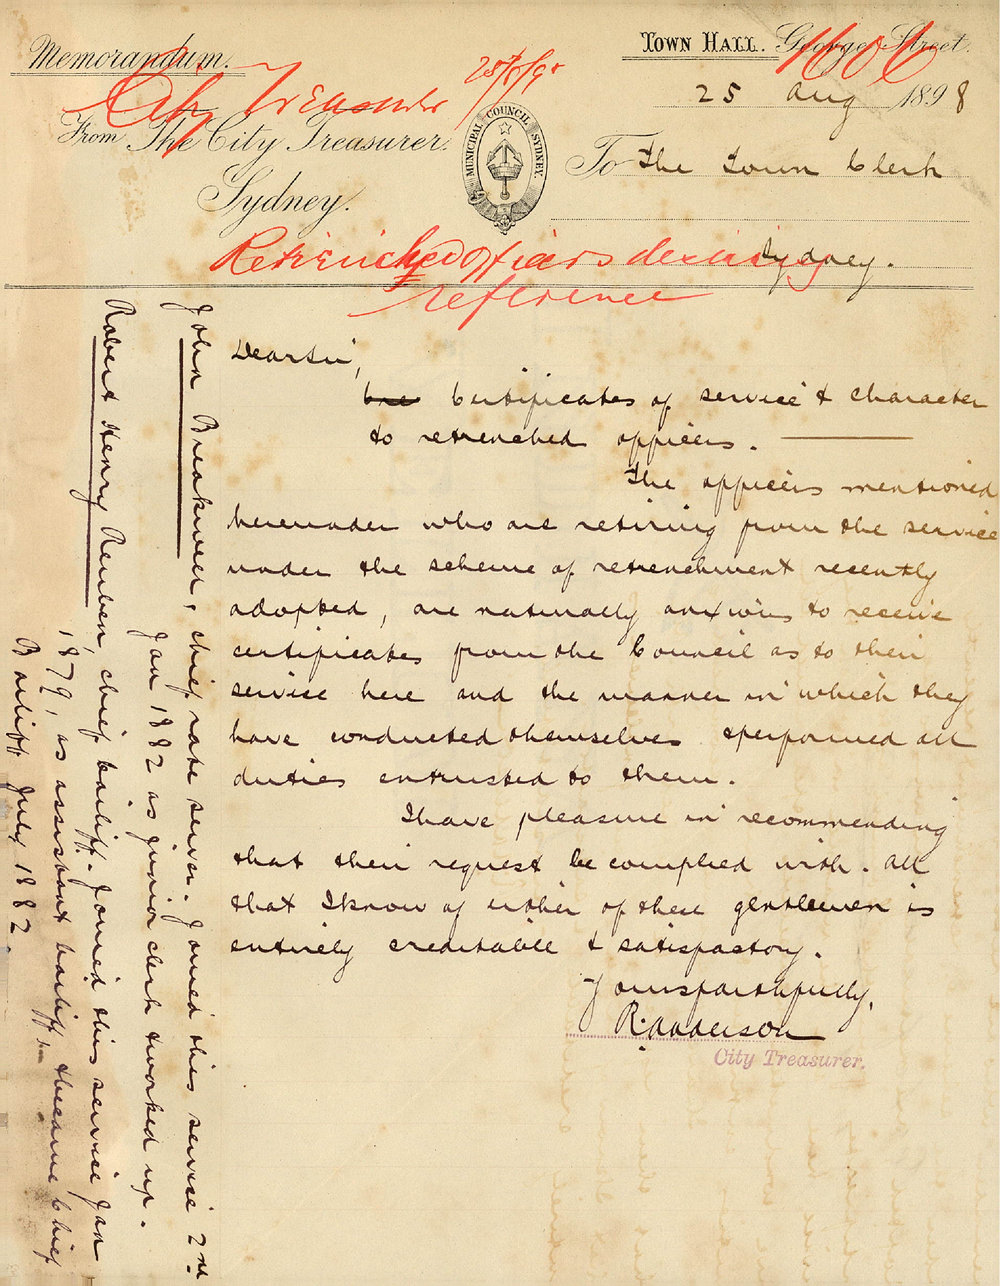 Memorandum.
TOWN HALL. George Street.
1606
25/8/98
City Treasurer
25 Aug 1898
From The City Treasurer.
Sydney.
MUNICIPAL COUNCIL SYDNEY.
To The Town Clerk
Sydney.
Retrenched Officers desiring
reference
Dear Sir,
Certificates of service & character
to retrenched officers.
The officers mentioned
hereunder who are retiring from the service
under the scheme of retrenchment recently
adopted, are naturally anxious to receive
certificates from the Council as to their
service here and the manner in which they
have conducted themselves & performed all
duties entrusted to them.
I have pleasure in recommending
that their request be complied with. All
that I know of either of these gentlemen is
entirely creditable & satisfactory.
Yours faithfully,
R. Anderson
City Treasurer.
John Breakwell, chief rate server. Joined this service 2nd
Jan 1882 as junior clerk & worked up.
Robert Henry Reuben, chief bailiff. Joined this service Jan
1879, as assistant bailiff & became Chief
Bailiff July 1882.